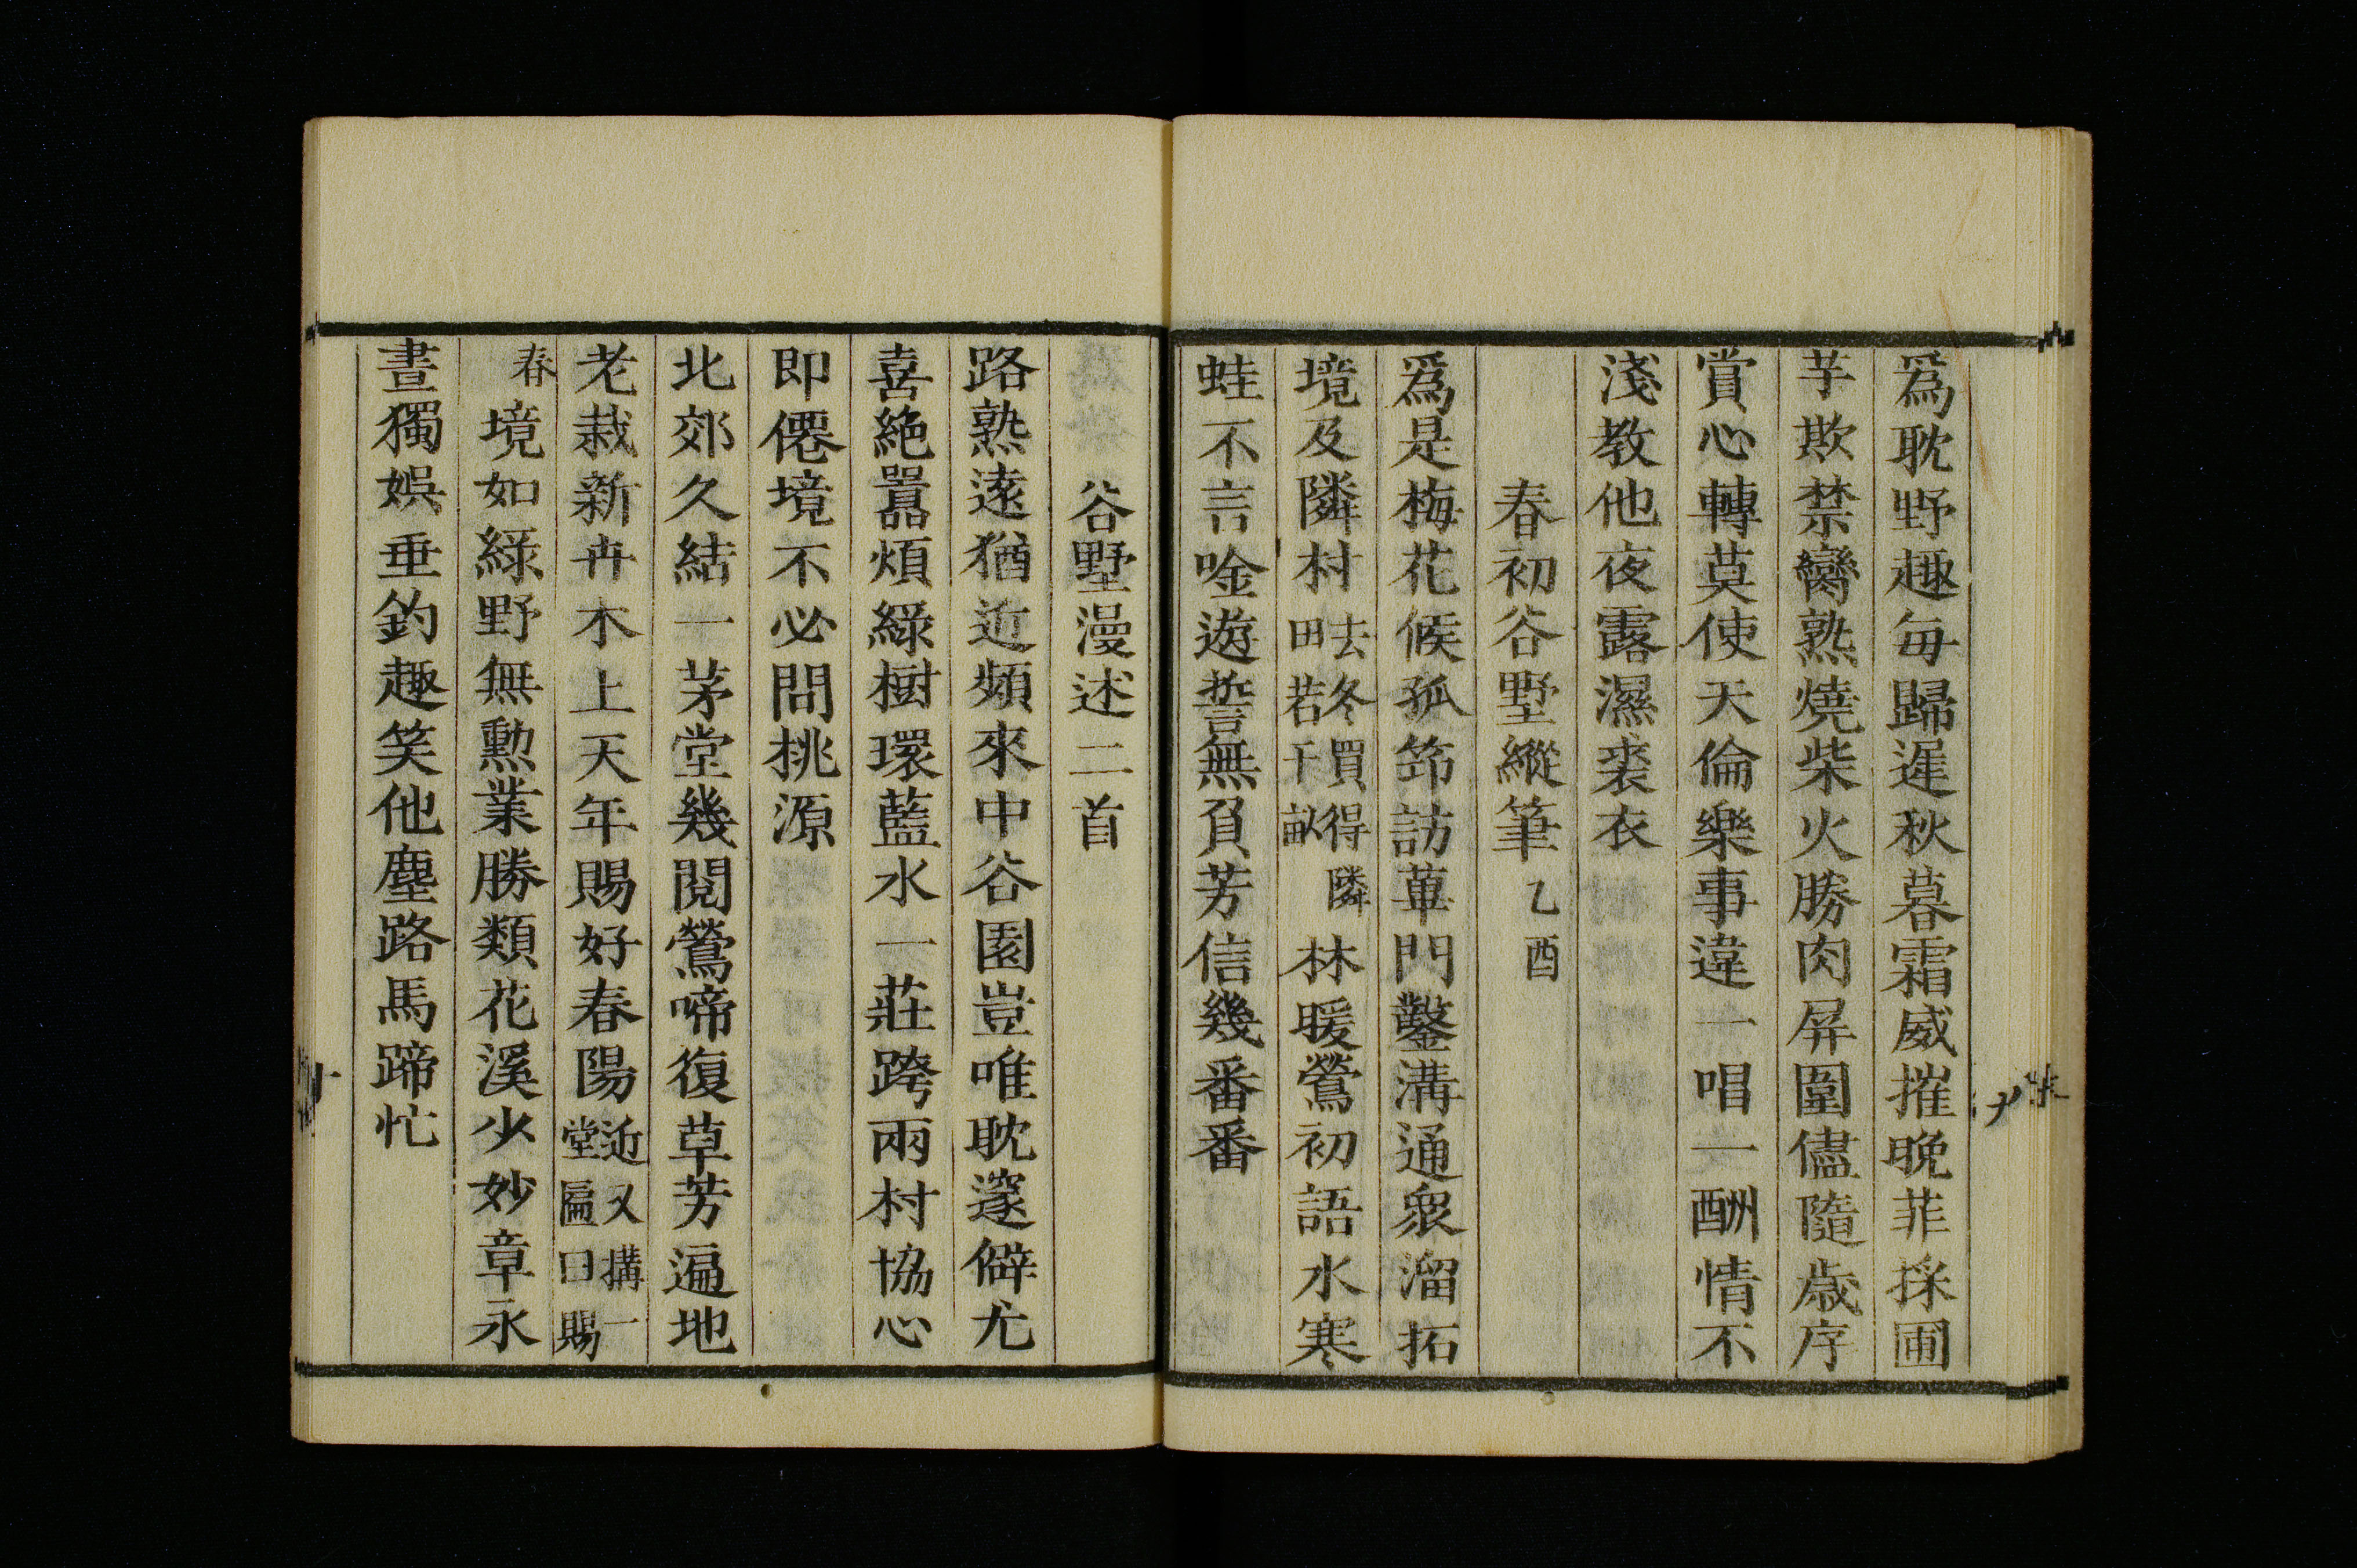 爲耽野趣每歸遲秋暮霜威摧晚菲採圃
芋欺禁臠熟燒柴火勝肉屏圍儘隨歲序
賞心轉莫使天倫樂事違一唱一酬情不
淺教他夜露濕裘衣
春初谷墅縱筆乙酉
爲是梅花候孤筇訪蓽門鑿溝通衆溜拓
境及隣村去冬買得隣田若干畝林暖鶯初語水寒
蛙不言唫遊誓無負芳信幾番番
谷墅漫述二首
路熟遠猶近頻來中谷園豈唯耽邃僻尤
喜絶囂煩綠樹環藍水一莊跨兩村協心
即僊境不必問桃源
北郊久結一茅堂幾閱鶯啼復草芳遍地
老栽新卉木上天年賜好春陽近又搆一堂匾曰賜
春境如綠野無勲業勝類花溪少妙章永
晝獨娯垂釣趣笑他塵路馬蹄忙